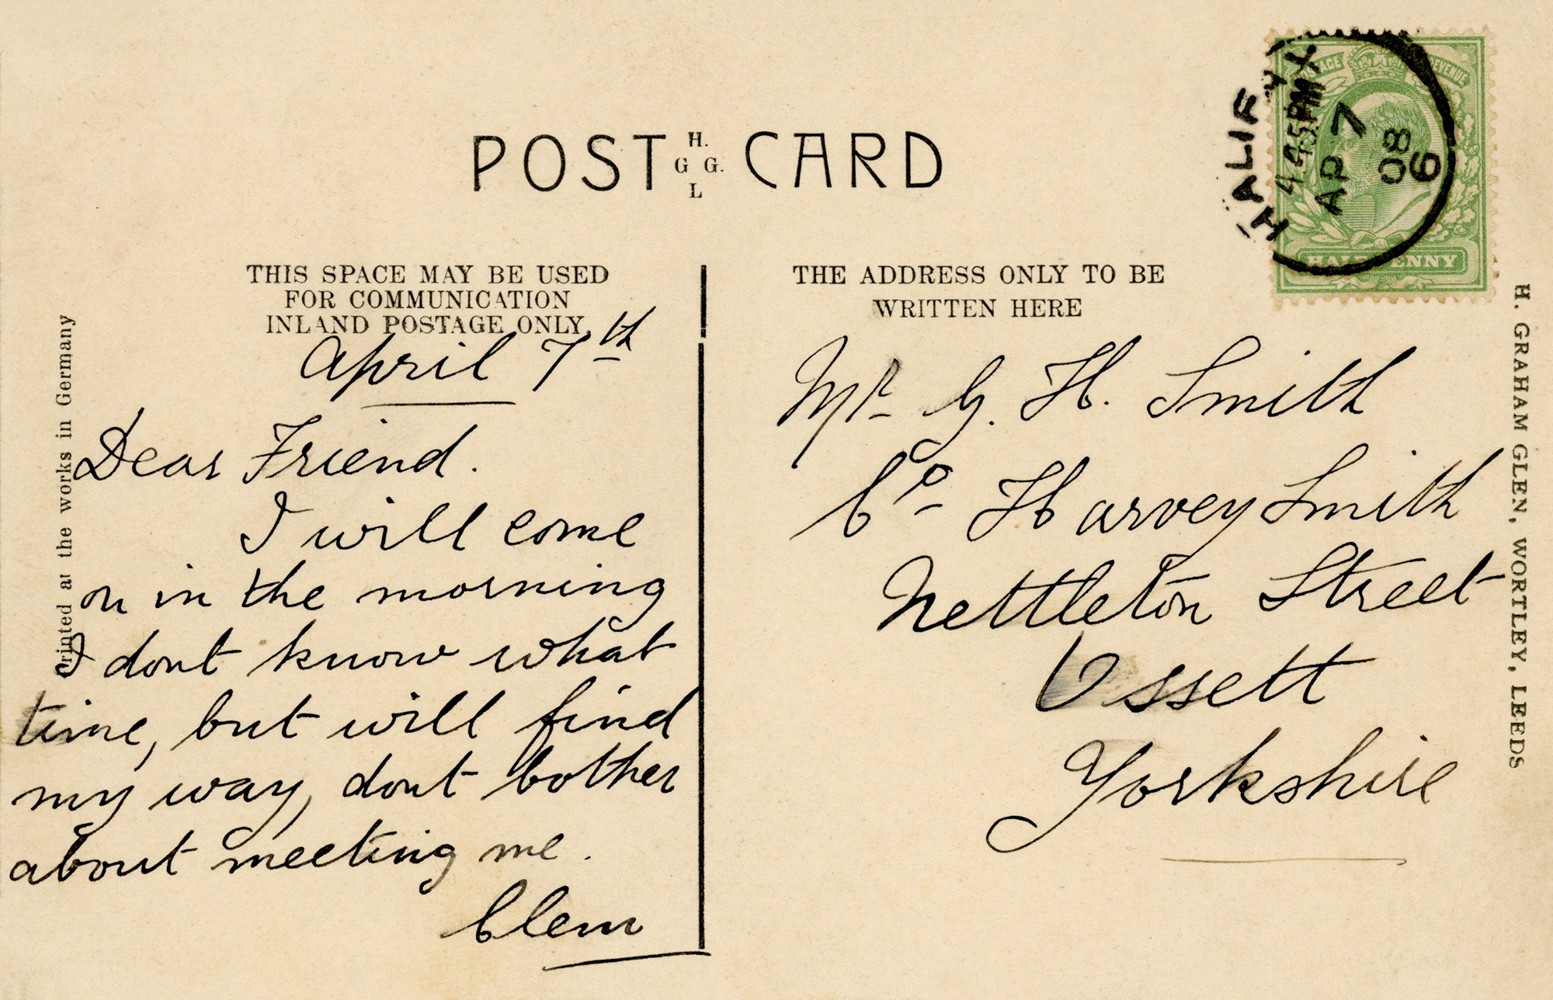 POST CARD
H.
G G.
L
THIS SPACE MAY BE USED
FOR COMMUNICATION
INLAND POSTAGE ONLY
THE ADDRESS ONLY TO BE
WRITTEN HERE
HALIFAX
4 45PM
AP 7
08
6
POSTAGE REVENUE
HALFPENNY
Printed at the works in Germany
April 7th
Dear Friend.
I will come
on in the morning
I dont know what
time, but will find
my way, dont bother
about meeting me.
Clem
Mr G. H. Smith
C/o Harvey Smith
Nettleton Street
Ossett
Yorkshire
H. GRAHAM GLEN, WORTLEY, LEEDS